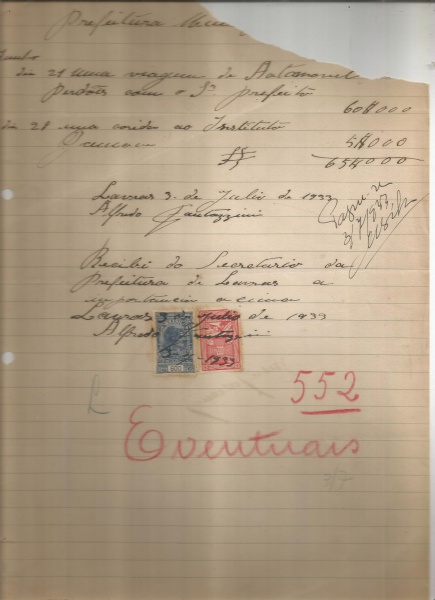 Prefeitura Mun
Junho
dia 21 uma viagem de Automovel
Perdões com o Sr prefeito
60$000
dia 28 uma corida ao Instituto
5$000
65$000
Lavras 3 de Julio de 1933
Alfredo
Pague-se
3/7/933
Recibi do Secretario da
Prefeitura de Lavras a
importancia acima
Lavras 3 de Julio de 1933
Alfredo
1933
552
Eventuais
3/7